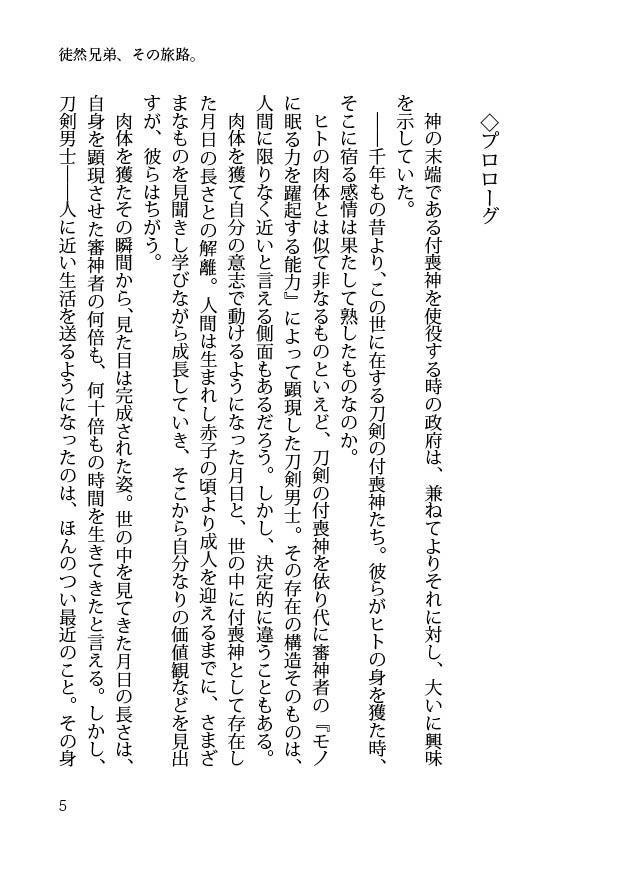 徒然兄弟、その旅路。
◇プロローグ
神の末端である付喪神を使役する時の政府は、兼ねてよりそれに対し、大いに興味
を示していた。
――千年もの昔より、この世に在する刀剣の付喪神たち。彼らがヒトの身を獲た時、
そこに宿る感情は果たして熟したものなのか。
ヒトの肉体とは似て非なるものといえど、刀剣の付喪神を依り代に審神者の『モノ
に眠る力を躍起する能力』によって顕現した刀剣男士。その存在の構造そのものは、
人間に限りなく近いと言える側面もあるだろう。しかし、決定的に違うこともある。
肉体を獲て自分の意志で動けるようになった月日と、世の中に付喪神として存在し
た月日の長さとの解離。人間は生まれし赤子の頃より成人を迎えるまでに、さまざ
まなものを見聞きし学びながら成長していき、そこから自分なりの価値観などを見出
すが、彼らはちがう。
肉体を獲たその瞬間から、見た目は完成された姿。世の中を見てきた月日の長さは、
自身を顕現させた審神者の何倍も、何十倍もの時間を生きてきたと言える。しかし、
刀剣男士――人に近い生活を送るようになったのは、ほんのつい最近のこと。その身
5